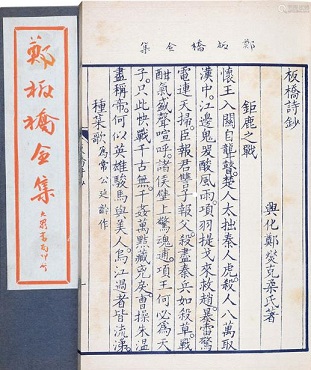 鄭板橋全集
鄭板橋全集
板橋詩鈔
興化鄭燮克柔氏著
鉅鹿之戰
懷王入關自聾瞽,楚人太拙秦人虎,殺人八萬取
漢中,江邊鬼哭酸風雨。項羽提戈來救趙,暴雷驚
電連天掃,臣報君讐子報父,殺盡秦兵如殺草。戰
酣氣盛聲喧呼,諸侯壁上驚魂逋,項王何必為天
子,只此快戰千古無。千姦萬黠藏兇戾,曹操朱温
盡稱帝,何似英雄駿馬與美人,烏江過者皆流涕。
種菜歌 為常公延齡作